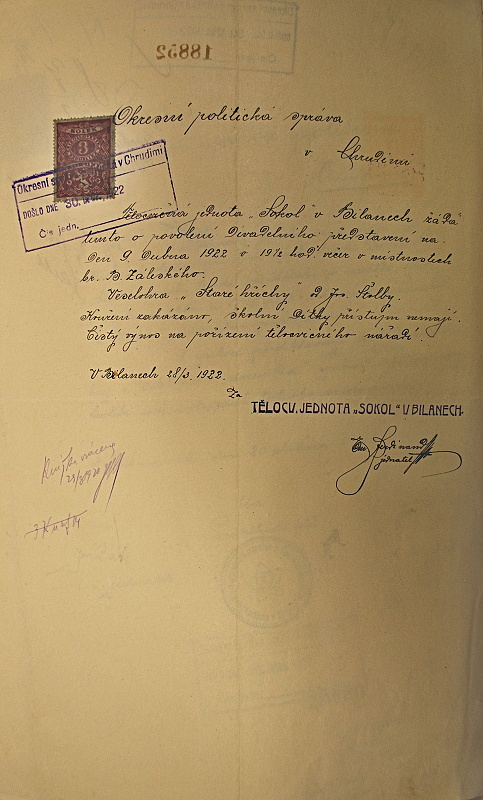 18852
Okresní politická správa
v Chrudimi
KOLEK
3
Okresní s v Chrudimi
DOŠLO DNE 30. 22
Čís. jedn.
Tělocvičná jednota „Sokol" v Bilanech žádá
tímto o povolení divadelního představení na
den 9. dubna 1922 v 19½ hod. večer v místnostech
br. B. Záliského.
Veselohra „Staré hříchy" od Jos. Štolby.
Kouření zakázáno, školní dítky přístup nemají.
Čistý výnos na pořízení tělocvičného nářadí.
V Bilanech 28/3. 1922.
Za
TĚLOCV. JEDNOTA „SOKOL" V BILANECH.
Ferdinand
jednatel